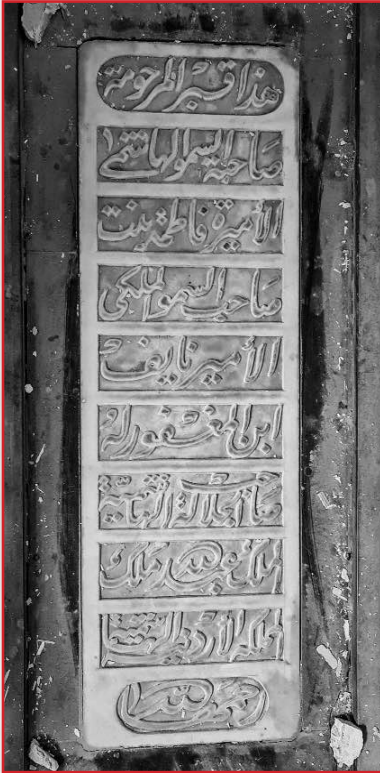 هذا قبر المرحومة
صاحبة السمو الهاشمي
الأميرة فاطمة بنت
صاحب السمو الملكي
الأمير نايف
ابن المغفور له
صاحب الجلالة الهاشمية
الملك عبد الله ملك
المملكة الأردنية الهاشمية
رحمه الله